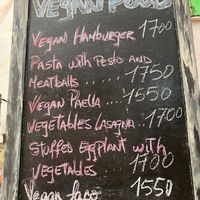 VEGAN FOOD
VEGAN HAMBURGER 1700
PASTA WITH PESTO AND
MEATBALLS ..... 1750
VEGAN PAELLA ... 1550
VEGETABLES LASAGNA 1700
STUFFES EGGPLANT WITH
VEGETABLES 1700
VEGAN 1550